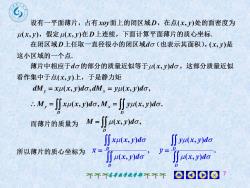 设有一平面薄片，占有xoy面上的闭区域D，在点(x, y)处的面密度为
μ(x, y)，假定μ(x, y)在D上连续，下面计算平面薄片的质心坐标.
在闭区域D上任取一直径很小的闭区域dσ（也表示其面积），(x, y)是
这小区域的一个点.
薄片中相应于dσ的部分的质量近似等于μ(x, y)dσ，这部分质量近似
看作集中于点(x, y)上，于是静力矩
dM_y = xμ(x, y)dσ, dM_x = yμ(x, y)dσ,
∴ M_y = ∬_D xμ(x, y)dσ, M_x = ∬_D yμ(x, y)dσ.
而薄片的质量为 M = ∬_D μ(x, y)dσ,
所以薄片的质心坐标为 x̄ = ∬_D xμ(x, y)dσ / ∬_D μ(x, y)dσ, ȳ = ∬_D yμ(x, y)dσ / ∬_D μ(x, y)dσ.
7